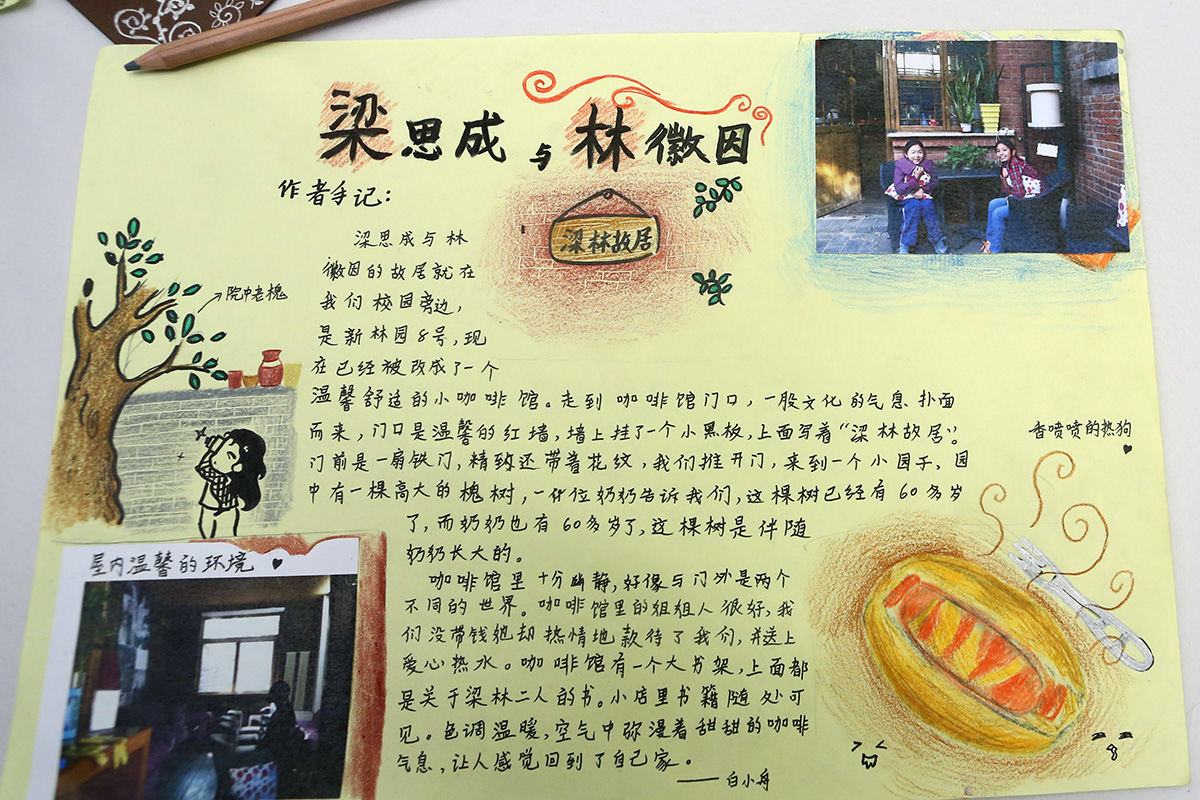 梁思成与林徽因
作者手记：
梁林故居
梁思成与林
徽因的故居就在
我们校园旁边，
是新林园8号，现
在已经被改成了一个
温馨舒适的小咖啡馆。走到咖啡馆门口，一股文化的气息扑面
而来，门口是温馨的红墙，墙上挂了一个小黑板，上面写着“梁林故居”。
门前是一扇铁门，精致还带着花纹，我们推开门，来到一个小园子，园
中有一棵高大的槐树，一位奶奶告诉我们，这棵树已经有60多岁
了，而奶奶也有60多岁了，这棵树是伴随
奶奶长大的。
咖啡馆里十分幽静，好像与门外是两个
不同的世界。咖啡馆里的姐姐人很好，我
们没带钱她却热情地款待了我们，并送上
爱心热水。咖啡馆有一个大书架，上面都
是关于梁林二人的书。小店里书籍随处可
见。色调温暖，空气中弥漫着甜甜的咖啡
气息，让人感觉回到了自己家。
——白小舟
院中老槐
屋内温馨的环境
香喷喷的热狗